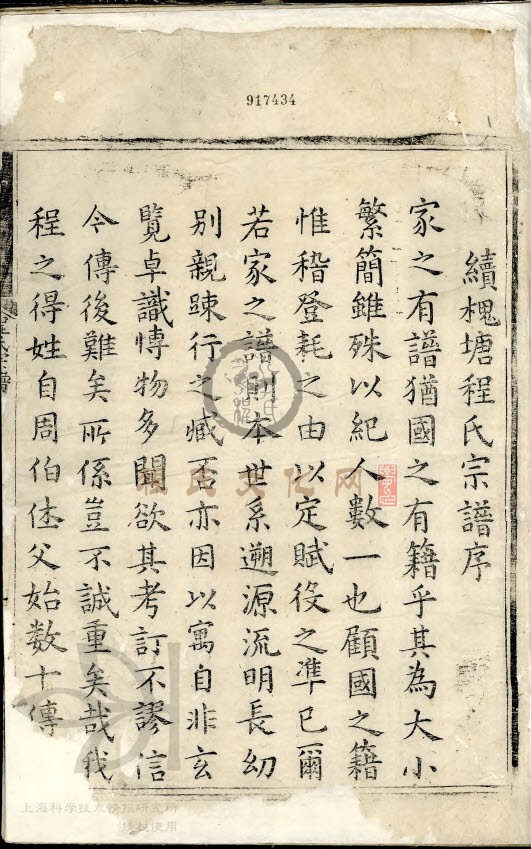 917434
續槐塘程氏宗譜序
家之有譜猶國之有籍乎其為大小
繁簡雖殊以紀人數一也顧國之籍
惟稽登耗之由以定賦役之準已爾
若家之譜則本世系遡源流明長幼
別親踈行之臧否亦因以寓自非玄
覽卓識愽物多聞欲其考訂不謬信
今傳後難矣所係豈不誠重矣哉我
程之得姓自周伯休父始数十傳
程氏文化网
上海科学技术情报研究所
授权使用